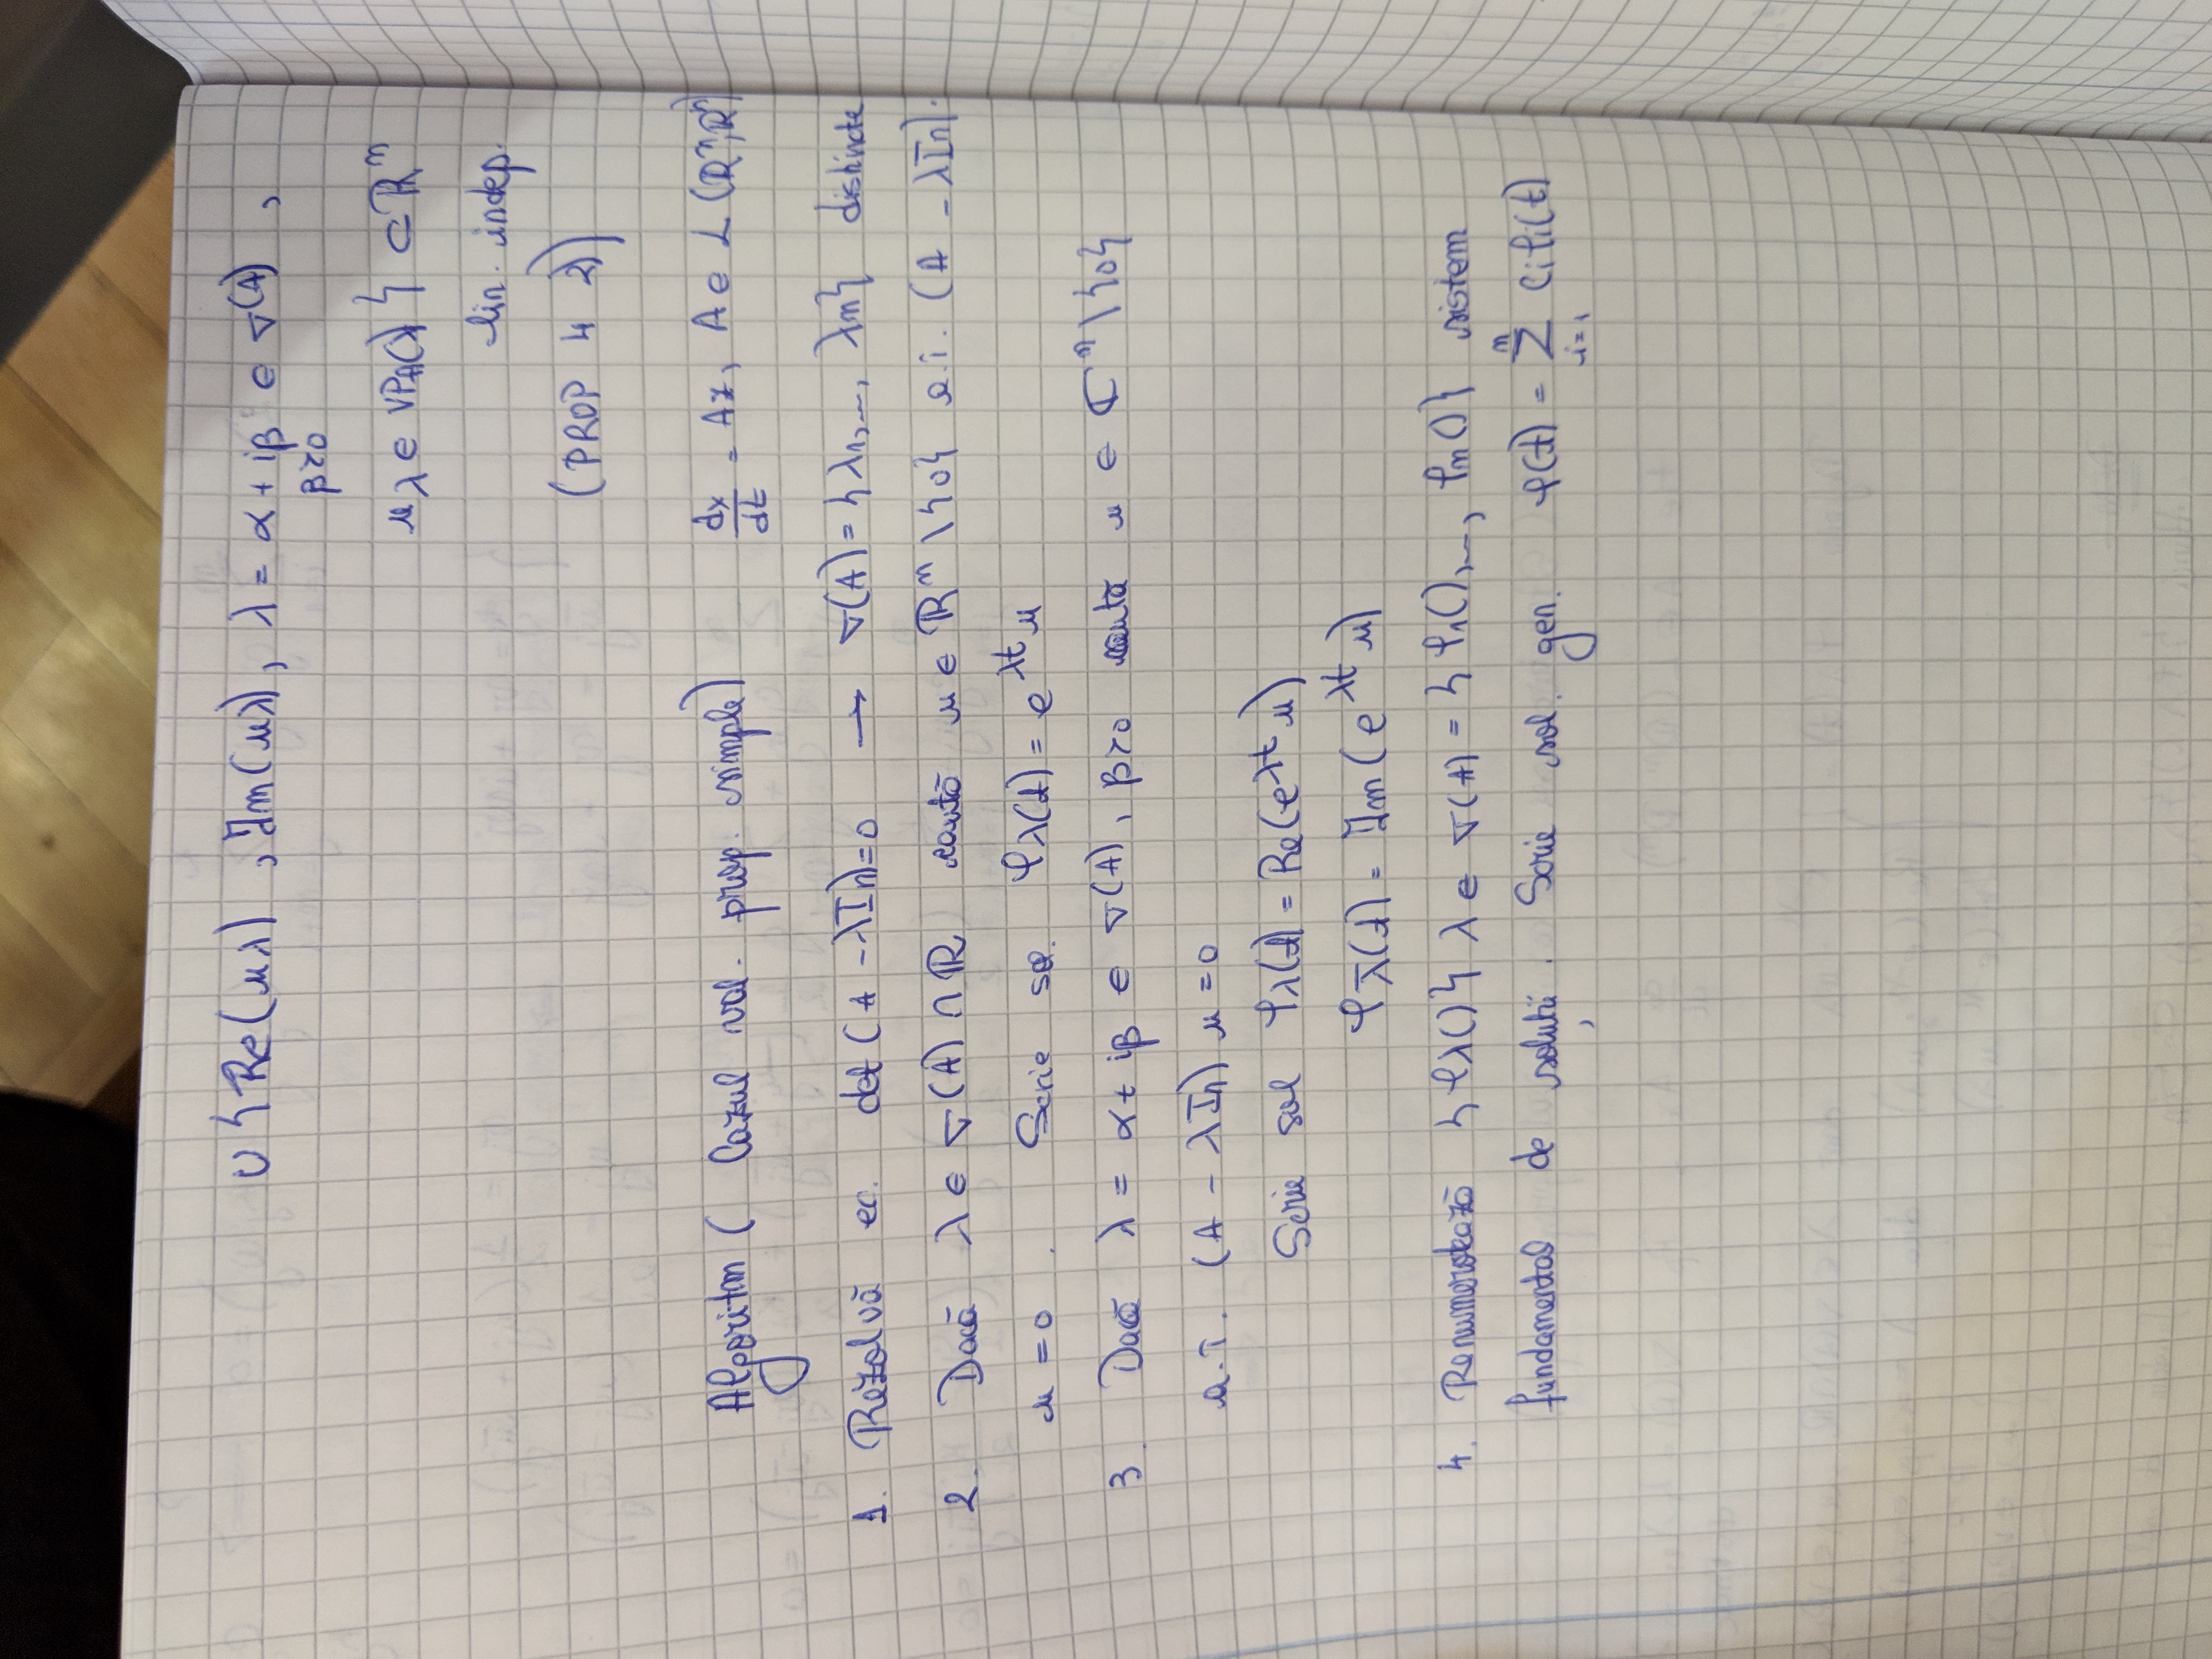 ∪ { Re(uλ) , Im(uλ), λ = α + iβ ∈ σ(A) ,
β>0
uλ ∈ VPA(λ) } ⊂ ℝⁿ
lin. indep.
(PROP 4 2)
Algoritm ( Cazul val. prop. simple) dx/dt = Ax, A ∈ L(ℝⁿ,ℝⁿ)
1. Rezolvă ec. det(A - λIn)=0 → σ(A) = {λ1,..., λn} distincte
2. Dacă λ ∈ σ(A) ∩ ℝ caută u ∈ ℝⁿ \ {0} a.î. (A - λIn).
u = 0 . Scrie sol. φλ(t) = e^λt u
3. Dacă λ = α + iβ ∈ σ(A), β>0 caută u ∈ ℂⁿ \ {0}
a.î. (A - λIn) u = 0
Scrie sol φλ(t) = Re(e^λt u)
φλ̄(t) = Im(e^λt u)
4. Renumerotează {φλ()} λ ∈ σ(A) = {φ1(),..., φn()} sistem
fundamental de soluții. Scrie sol. gen. φ(t) = Σ_{i=1}^{n} Ciφi(t)